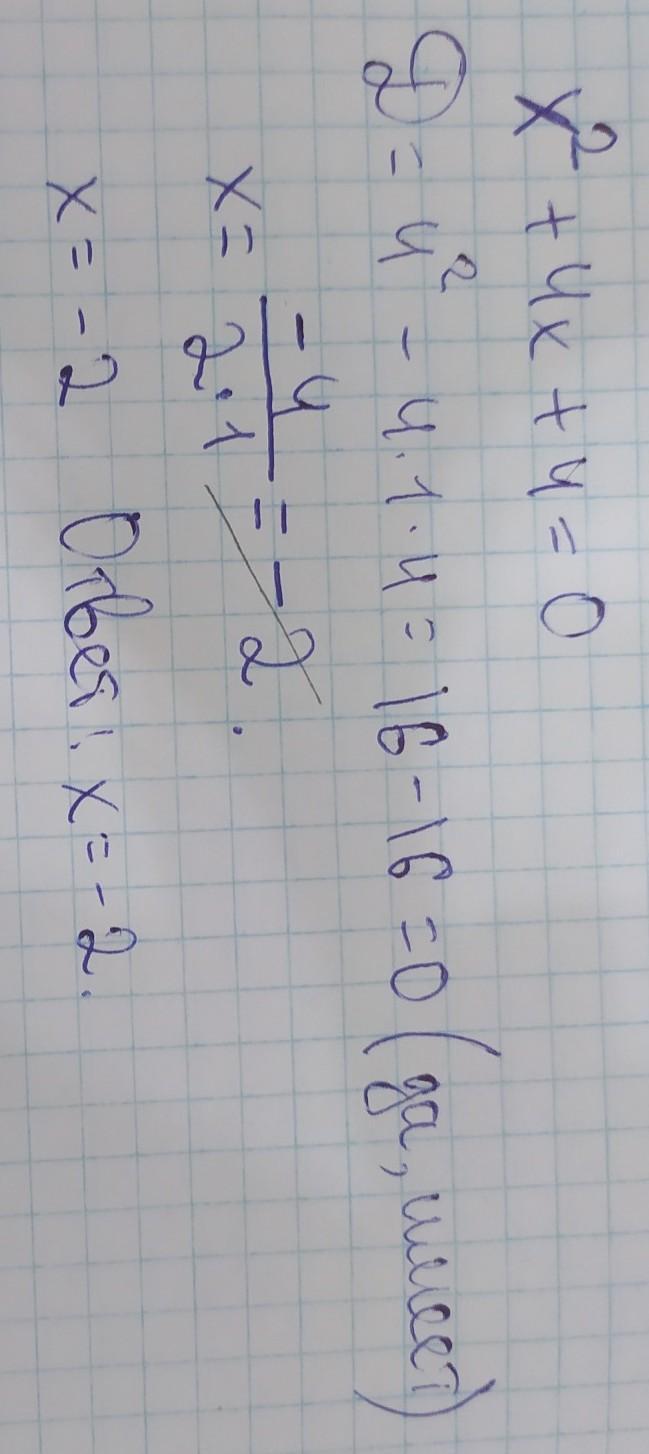 x² + 4x + 4 = 0
D = 4² - 4·1·4 = 16 - 16 = 0 (да, имеет)
x = -4/2·1 = -2.
x = -2 Ответ: x = -2.